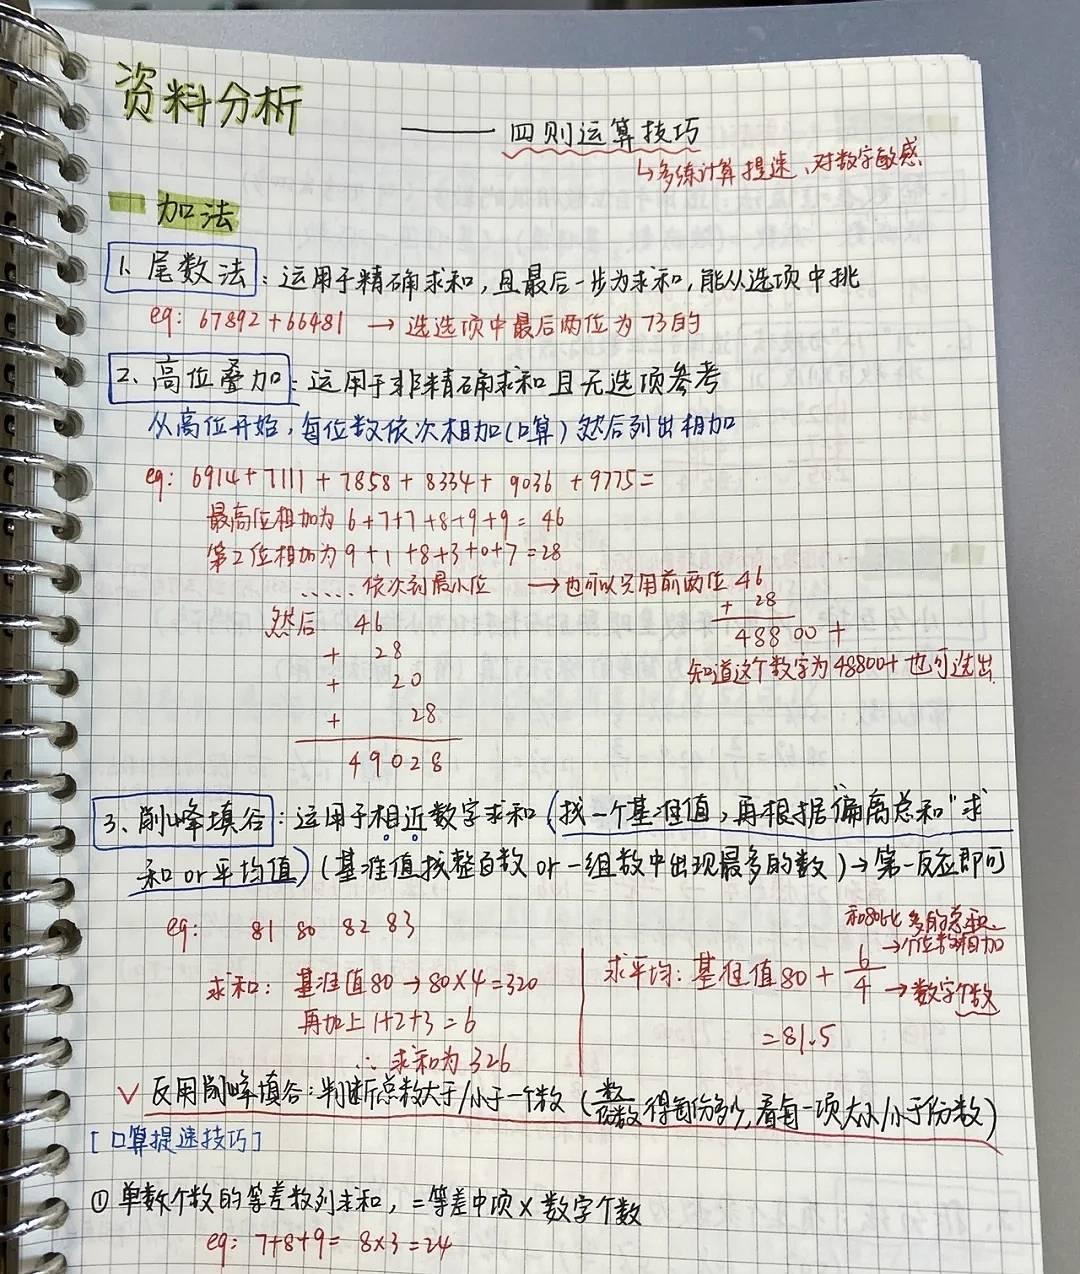 资料分析
—— 四则运算技巧
↳多练计算提速、对数字敏感
加法
1、尾数法：运用于精确求和，且最后一步为求和，能从选项中挑
eg: 67892+66481 → 选选项中最后两位为73的
2、高位叠加：运用于非精确求和且无选项参考
从高位开始，每位数依次相加(口算)然后列出相加
eg: 6914+7111+7858+8334+9036+9775=
最高位相加为 6+7+7+8+9+9=46
第2位相加为 9+1+8+3+0+7=28
……依次到最小位 →也可以只用前两位 46
+ 28
48800+
知道这个数字为48800+也可选出
然后 46
+ 28
+ 20
+ 28
49028
3、削峰填谷：运用于相近数字求和(找一个基准值，再根据"偏离总和"求
和or平均值)(基准值找整百数or一组数中出现最多的数)→第一反应即可
eg: 81 80 82 83
求和：基准值80→80×4=320
再加上1+2+3=6
∴求和为326
和80比多的总和
→个位数相加
求平均：基准值80+6/4→数字个数
=81.5
√反用削峰填谷：判断总数大于/小于一个数(数/份数得每份多少，看每一项大/小于份数)
[口算提速技巧]
①单数个数的等差数列求和，=等差中项×数字个数
eg: 7+8+9=8×3=24